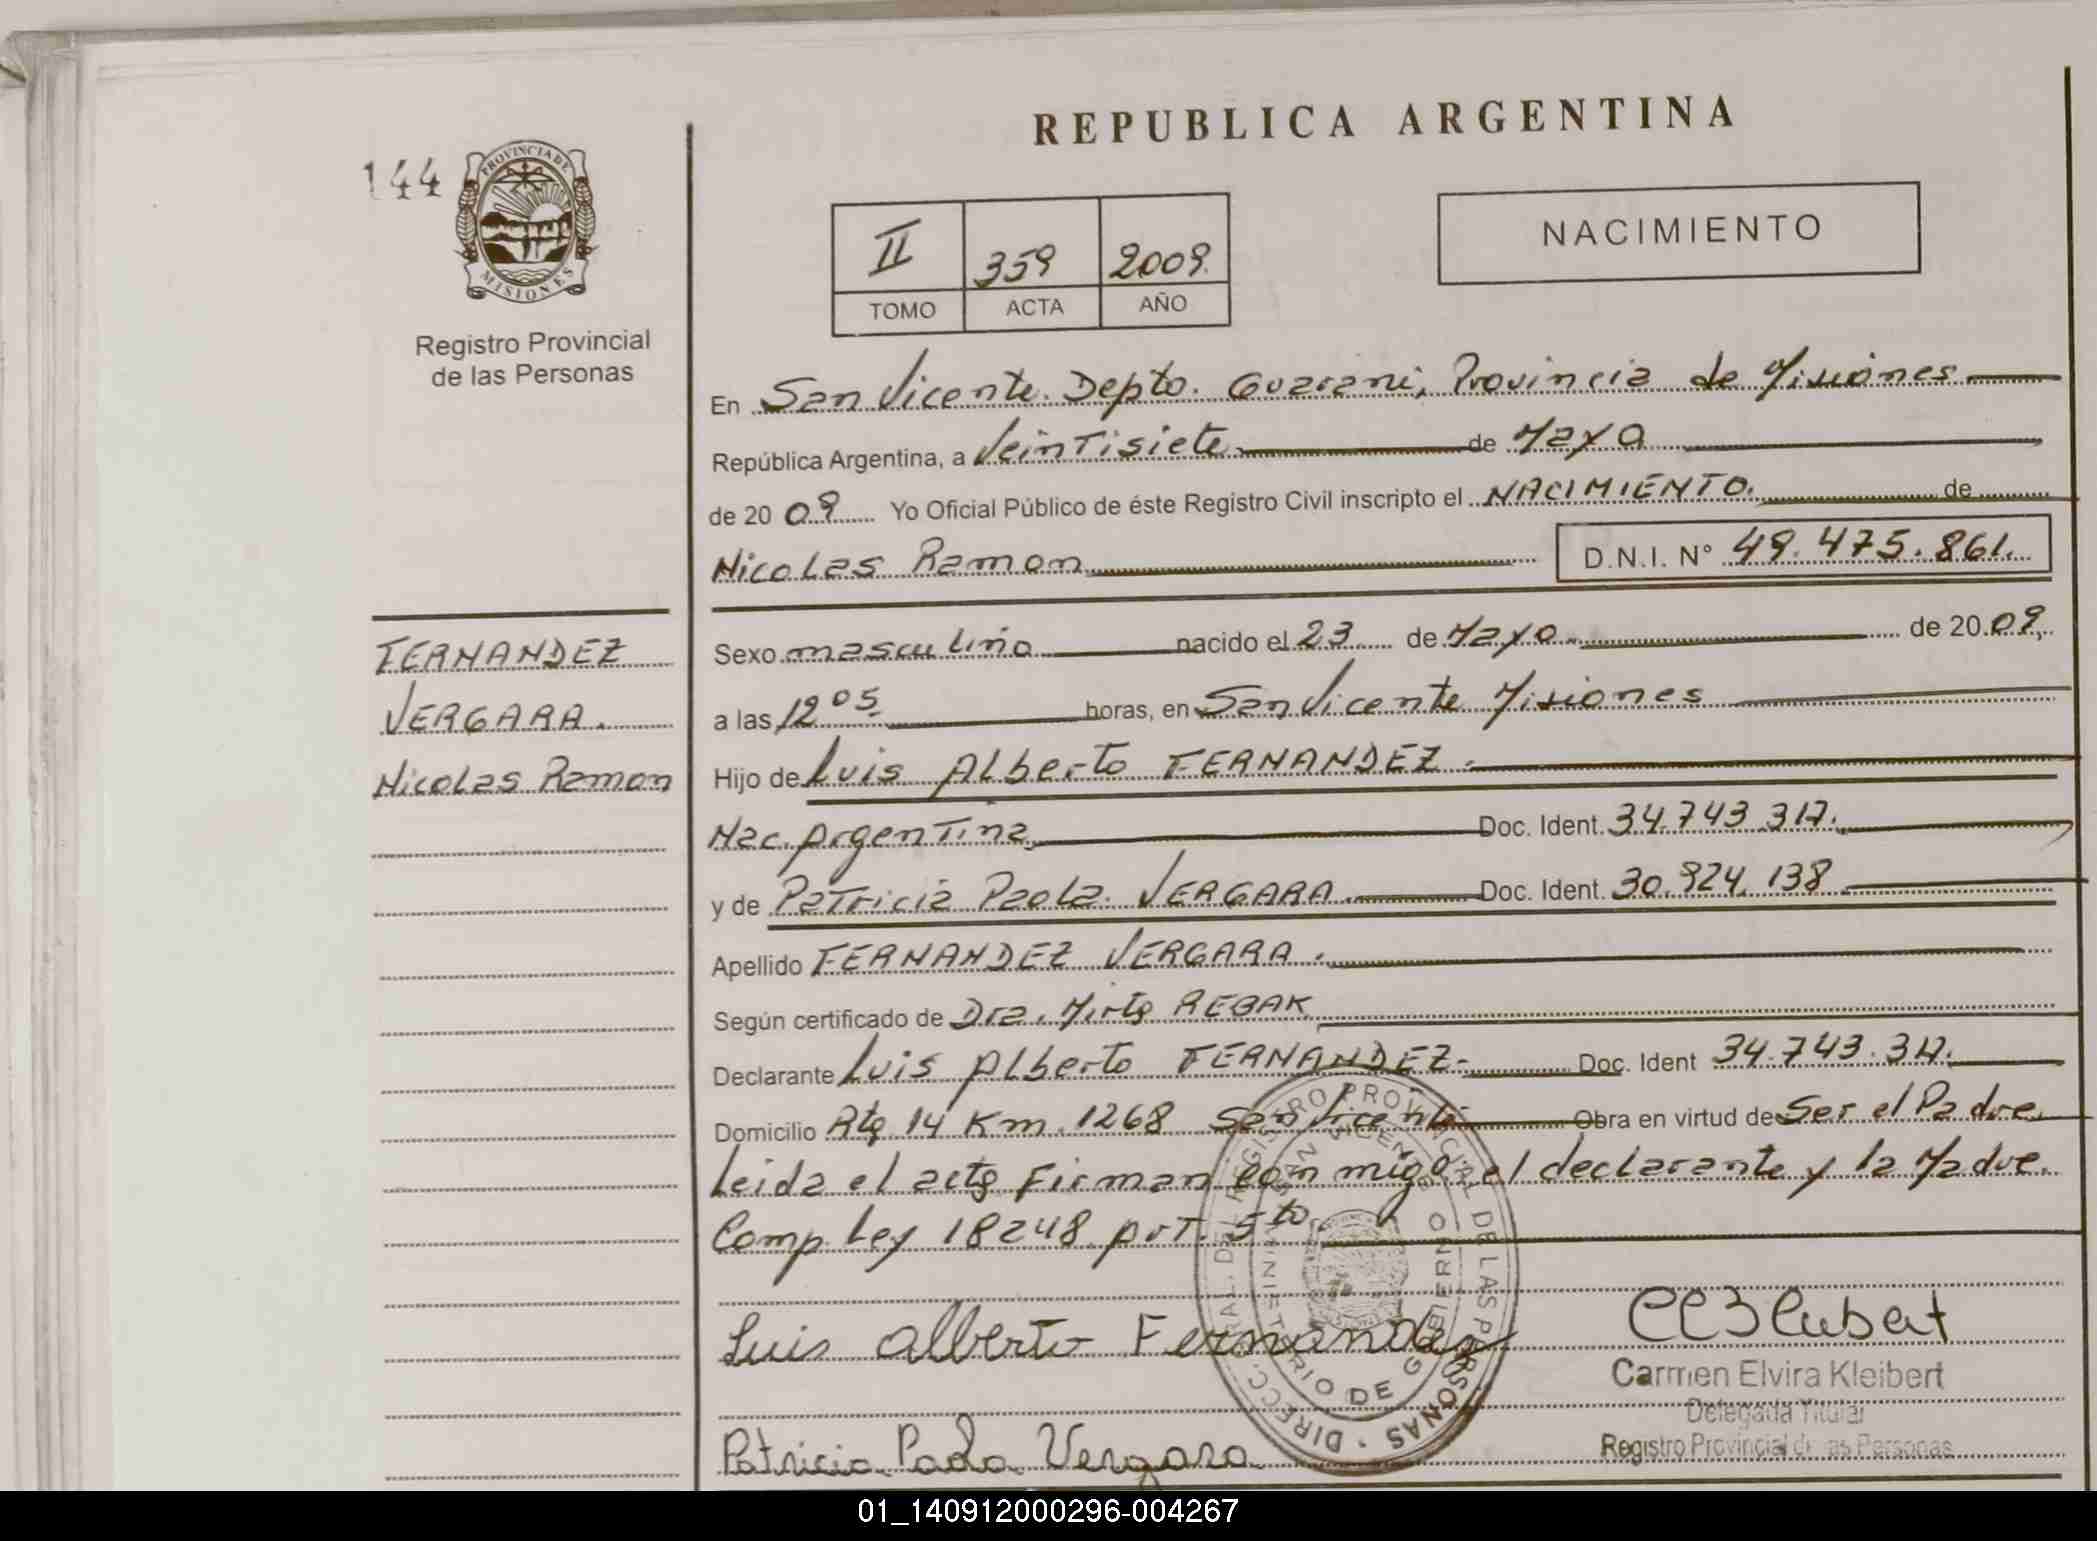 REPUBLICA ARGENTINA
144
PROVINCIA DE
MISIONES
Registro Provincial
de las Personas
II 359 2009.
TOMO ACTA AÑO
NACIMIENTO
En San Vicente. Depto. Guarani, Provincia de Misiones
República Argentina, a Veintisiete. de Mayo
de 2009 Yo Oficial Público de éste Registro Civil inscripto el NACIMIENTO. de
Nicolas Ramon D.N.I. N° 49.475.861.
FERNANDEZ
VERGARA.
Nicolas Ramon
Sexo masculino nacido el 23 de Mayo de 2009,
a las 12 05 horas, en San Vicente Misiones
Hijo de Luis Alberto FERNANDEZ.
Nac. Argentina Doc. Ident. 34.743.317.
y de Patricia Paola VERGARA. Doc. Ident. 30.924.138
Apellido FERNANDEZ VERGARA.
Según certificado de Dra. Mirta REBAK
Declarante Luis Alberto FERNANDEZ- Doc. Ident 34.743.317.
Domicilio Rta 14 Km. 1268 San Vicente Obra en virtud de Ser el Padre.
Leida el acta Firman conmigo el declarante y la Madre.
Comp. Ley 18248 Art. 5to.
Luis Alberto Fernandez
Carmen Elvira Kleibert
Delegada Titular
Registro Provincial de las Personas
Patricia Paola Vergara
01_140912000296-004267